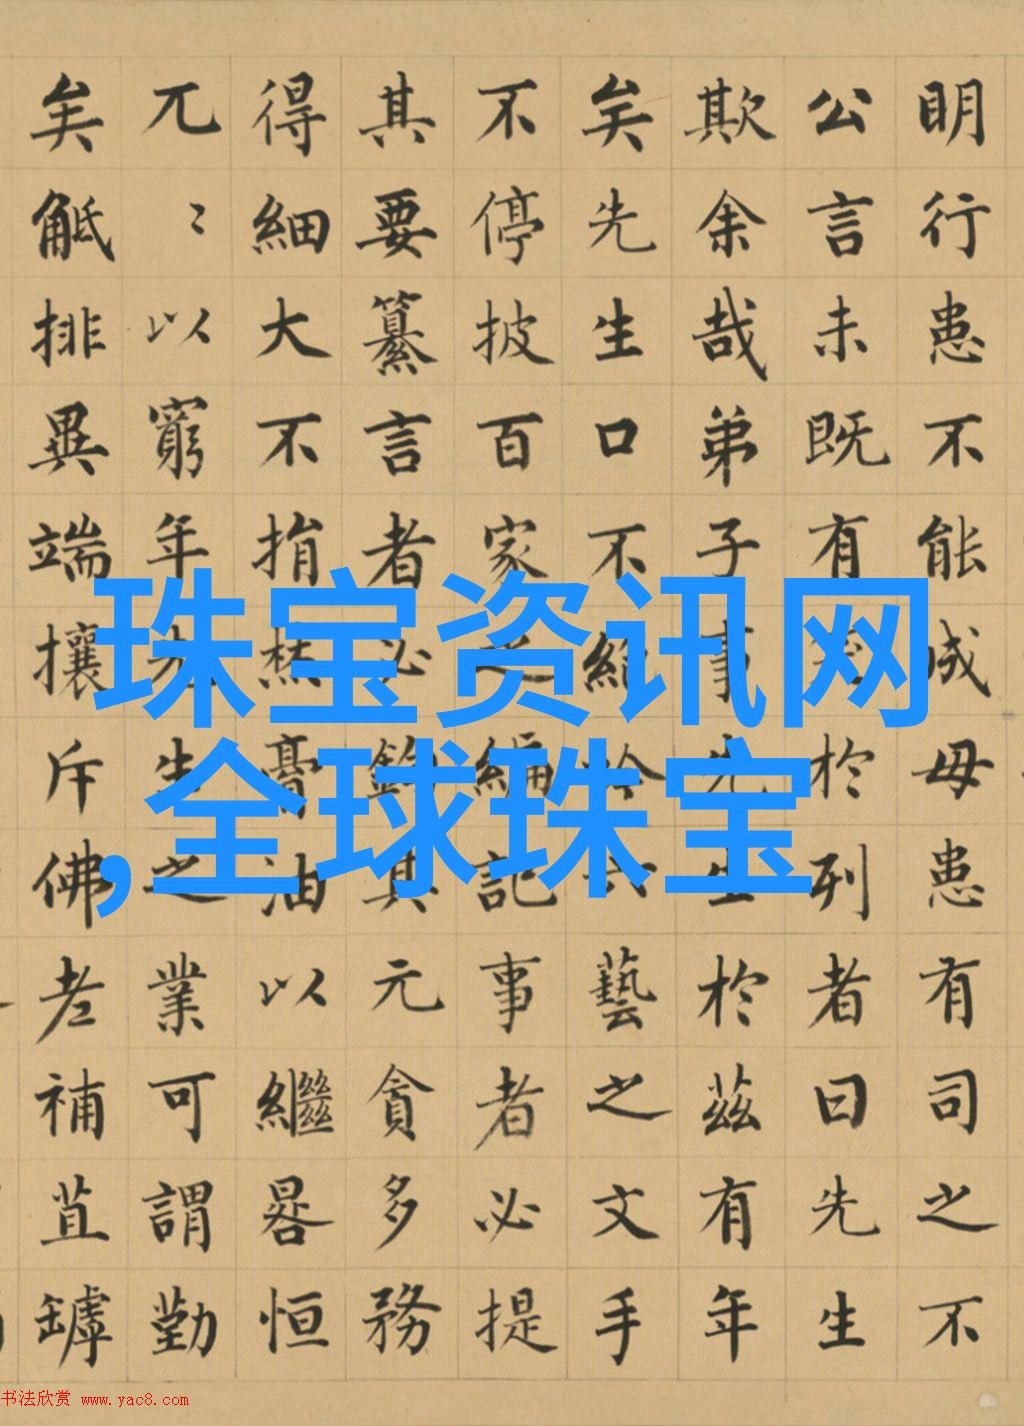 明行患不能成毋患有司之不
公言未既有笑於列者曰先生
欺余哉弟子事先生於茲有年
矣先生口不絕六藝之文手
不停披百家之編記事者必提
其要纂言者必鉤其元貪多務
得細大不捐焚膏油以繼晷恒
兀〻以窮年先生之業可謂勤
矣觝排異端攘斥佛老補苴罅
珠宝资讯网
,全球珠宝
书法欣赏 www.yac8.com